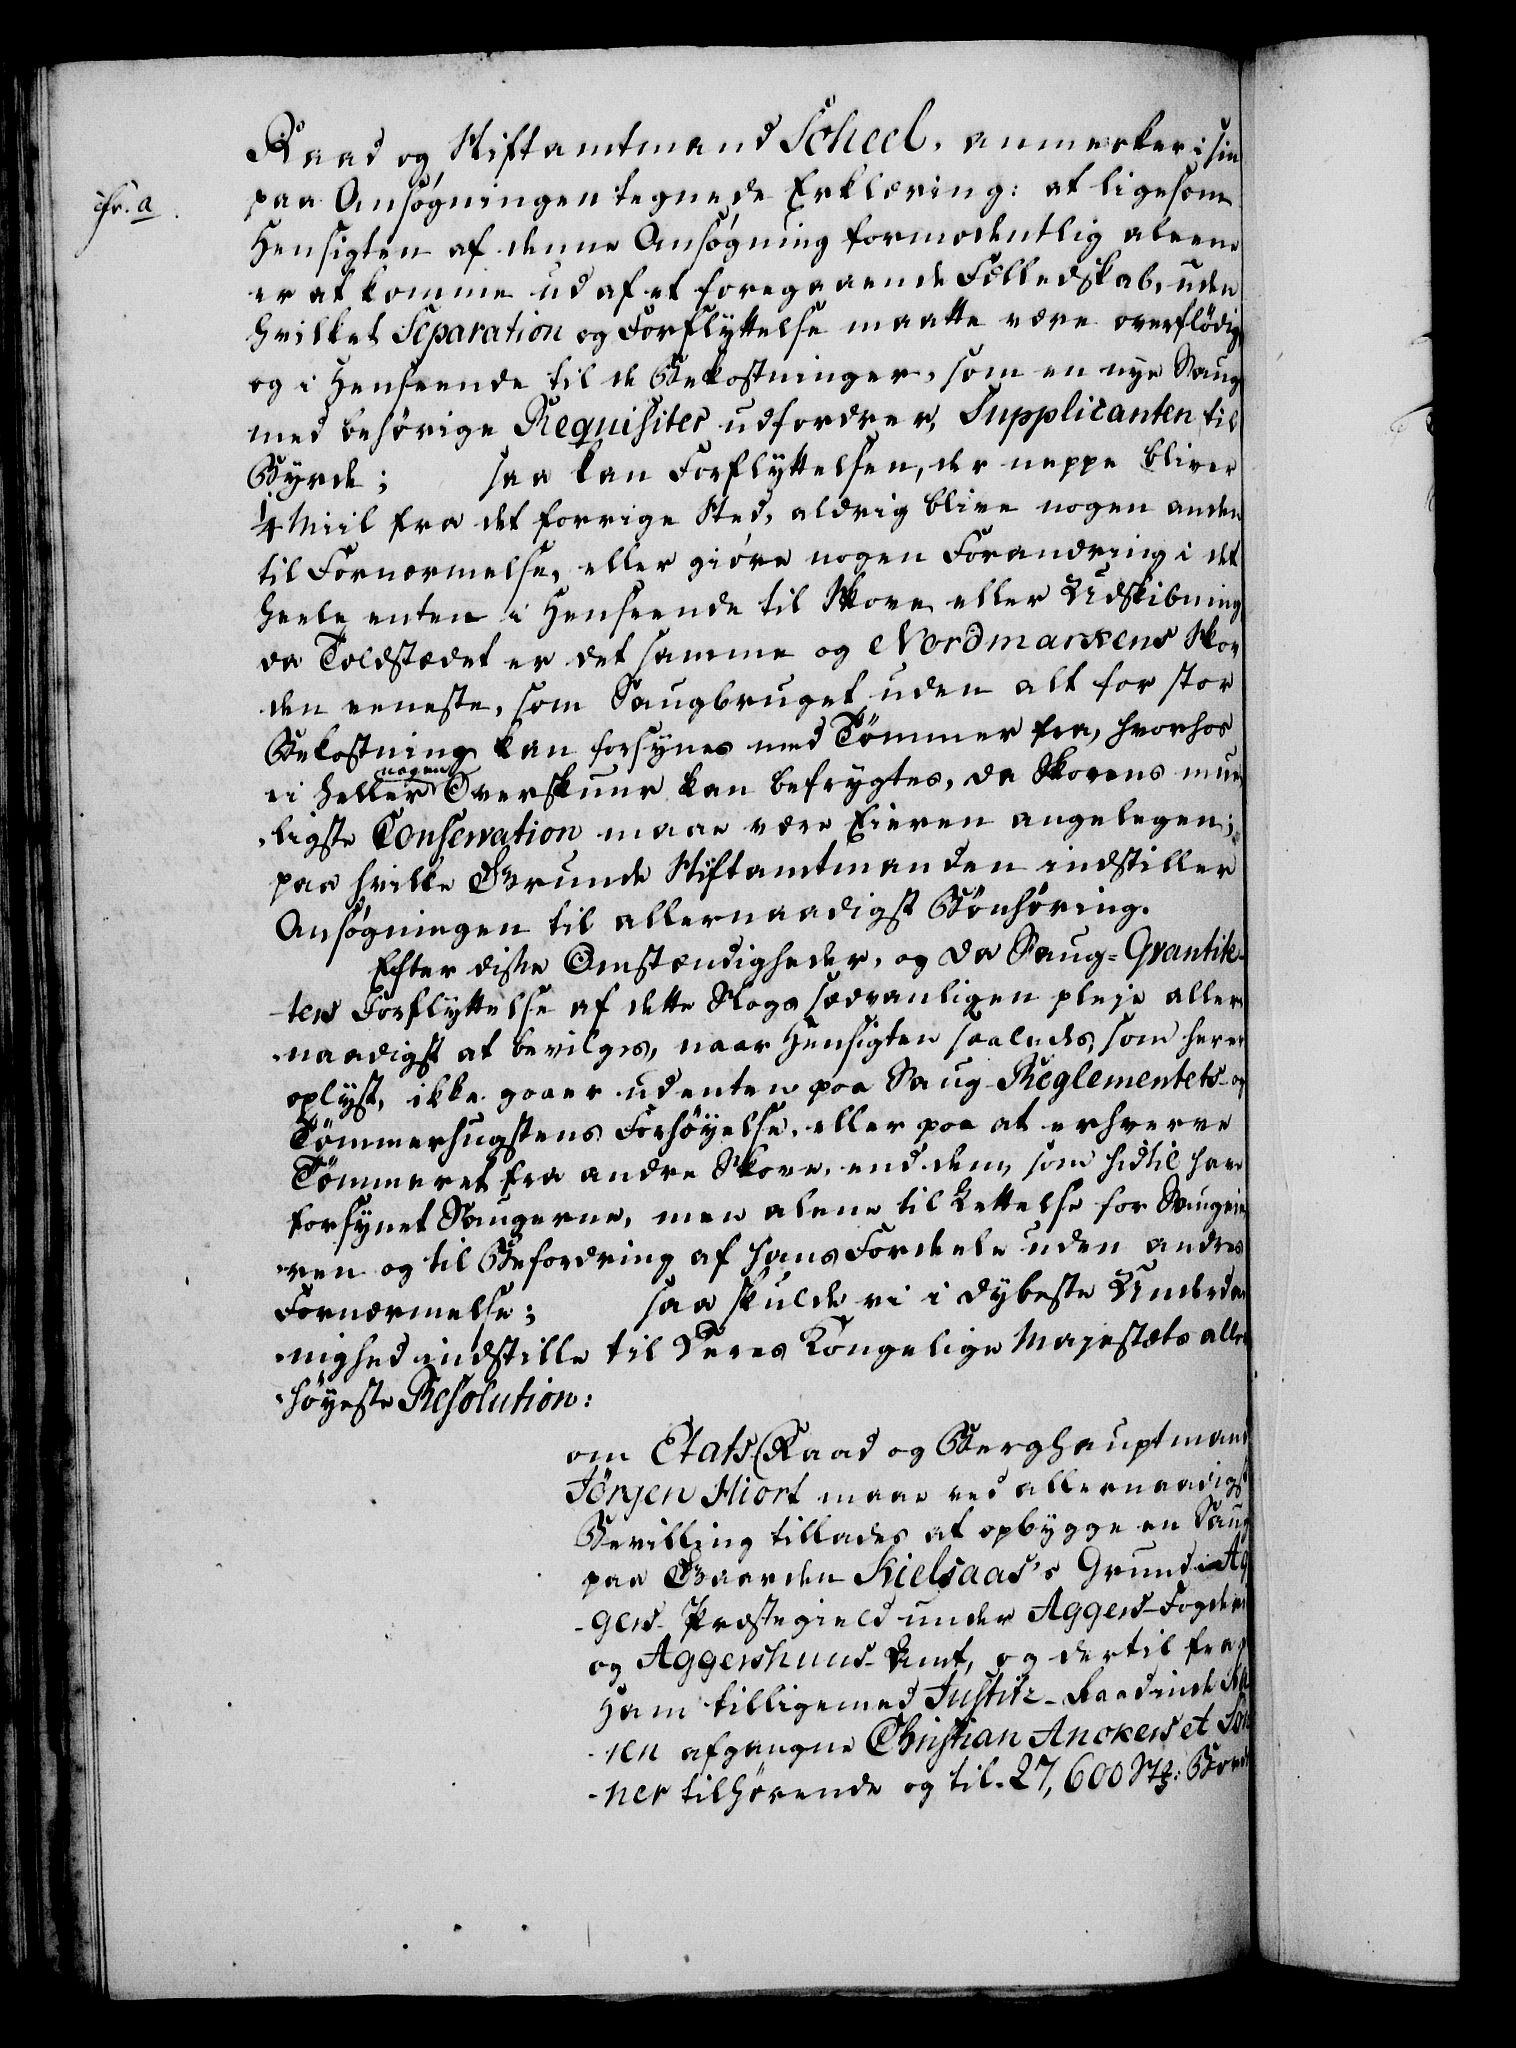 cfr. a.
Raad og Stiftamtmand Scheel, anmerker i sin
paa Ansøgningen tegnede Erklæring: at ligesom
Hensigten af denne Ansøgning formodentlig aleene
er at komme ud af et foregaaende Fælledskab, uden
hvilket Separation og Forflyttelse maatte være overflödig,
og i Henseende til de Bekostninger, som en nye Saug
med behørige Requisiter udfordrer, Supplicanten til
Byrde; saa kan Forflyttelsen, der neppe bliver
1/4 Miil fra det forrige Sted, aldrig blive nogen anden
til Fornærmelse, eller giøre nogen Forandring i det
heele enten i Henseende til Skove eller Udskibning
da Toldstædet er det samme og Nordmarkens Skov
den eeneste, som Saugbruget uden alt for stor
Bekostning kan forsynes med Tömmer fra, hvorhos
ei heller nogen Overskuur kan befrygtes, da Skovens mue-
-ligste Conservation maae være Eieren angelegen;
paa hvilke Grunde Stiftamtmanden indstiller
Ansøgningen til allernaadigst Bönhöring.
Efter disse Omstændigheder, og da Saug-Qvantite-
-ters Forflyttelse af dette Slags sædvanligen pleje aller-
-naadigst at bevilges, naar Hensigten saaledes, som her er
oplyst, ikke gaaer udenten paa Saug-Reglementets- og
Tömmerhugstens Forhöyelse, eller paa at erhverve
Tömmeret fra andre Skove, end dem, som hidtil have
forsynet Saugerne, men alene til Lettelse for Saugeie-
-ren og til Befordring af hans Fordeele uden andres
Fornærmelse; saa skulde vi i dybeste Underda-
-nighed indstille til Deres Kongelige Majestæts aller-
-höyeste Resolution:
om Etats Raad og Berghauptmand
Jörgen Hiort maae ved allernaadigst
Bevilling tillades at opbygge en Saug
paa Gaarden Kielsaas's Grund i Ag-
-gers- Præstegield under Aggers-Fogderi
og Aggershuus-Amt, og dertil fra
ham tilligemed Justitz-Raadinde Ka-
-ren afgangne Christian Anckers et Søn-
-ner tilhørende og til 27,600 Stk: Bord